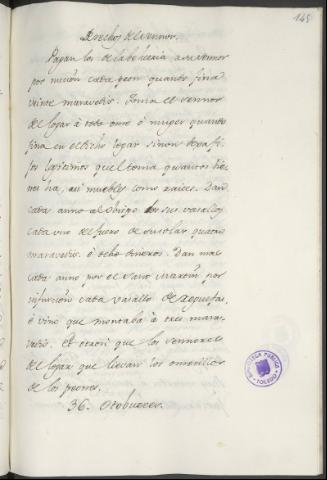 145
Derechos del sennor.
Pagan los de la behetria a su sennor
por nuncion cada peon quando fina
veinte maravedis. Toma el sennor
del logar á todo ome ó muger quando
fina en el dicho logar si non dexa fi
jos legitimos quel toma quantos bie
nes ha, asi muebles como raices. Dan
cada anno al Obispo dos sus vasallos
cada uno del fuero de su solar quatro
maravedis, ó ocho dineros. Dan mas
cada anno por el Sant Martin por
infurcion cada vasallo de
ó vino que montaba á tres mara
vedis. Et otrosi que los sennores
del logar que llevan los omecillos
de los peones.
36.
BIBLIOTECA PUBLICA
TOLEDO